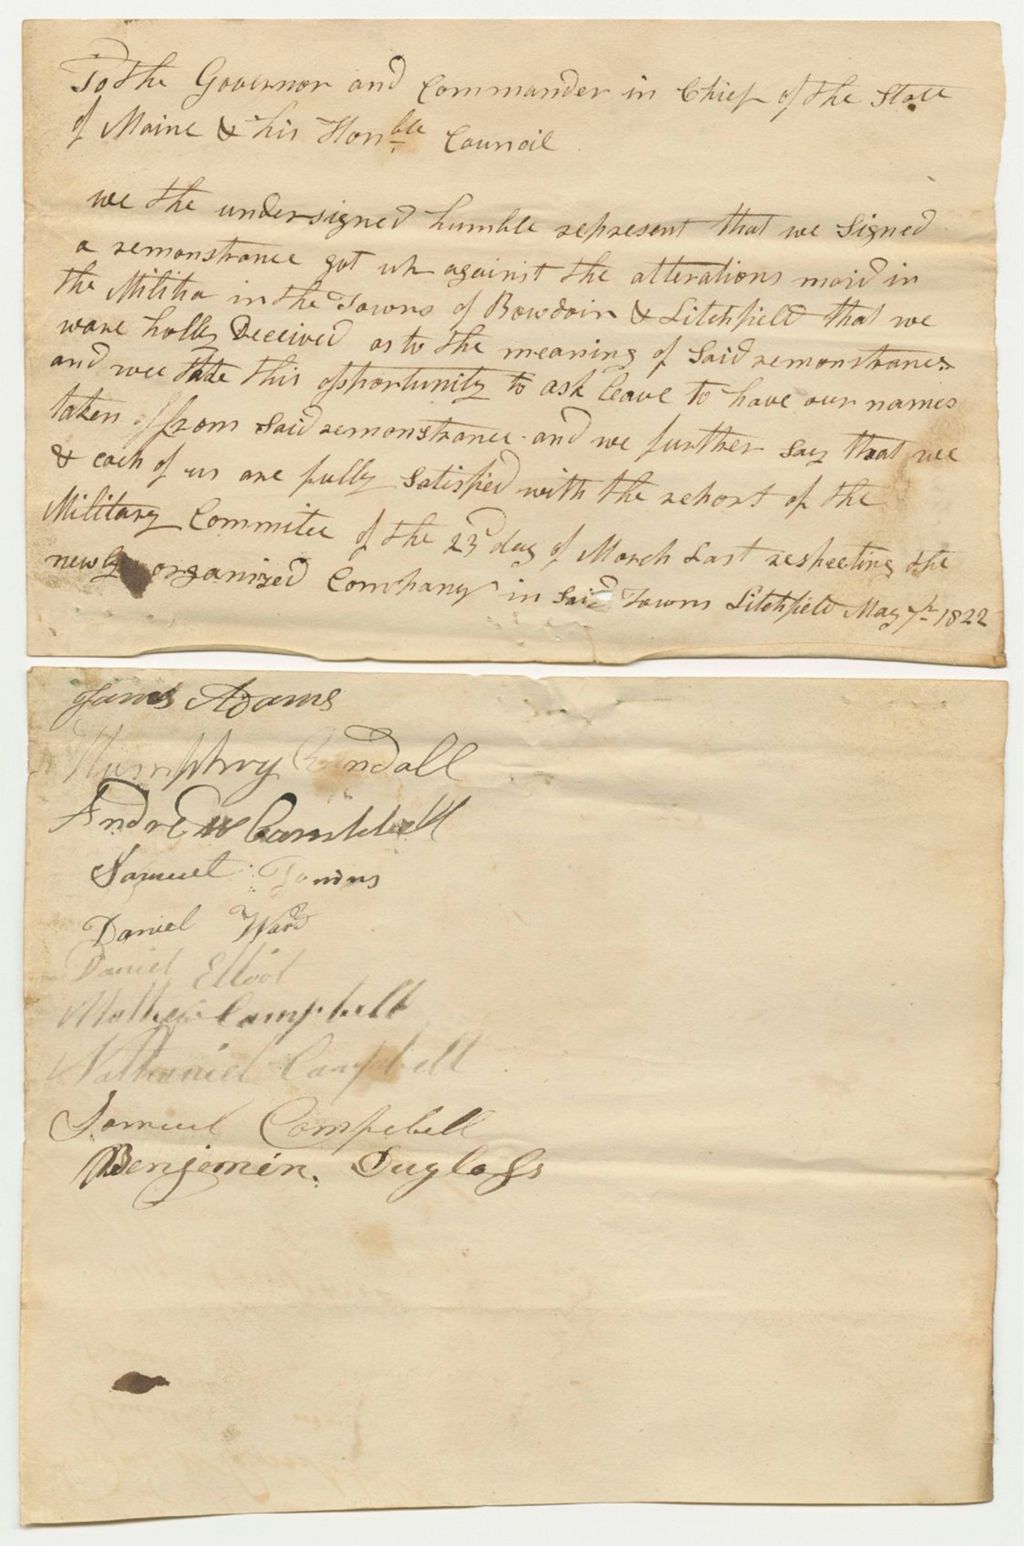 To the Governor and Commander in Chief of the State
of Maine & his Honble Council
we the undersigned humble represent that we Signed
a remonstrance got up against the alterations maid in
the Militia in the Towns of Bowdoin & Litchfield that we
ware holly Deceived as to the meaning of Said remonstrance
and wee take this opportunity to ask leave to have our names
taken of from Said remonstrance and we further say that we
& each of us are fully Satisfied with the report of the
Military Commitee of the 23d day of March Last respecting the
newly organized Company in Said Towns Litchfield May 7th 1822
James Adams
Humphry Kendall
Andrew Campbell
Samuel
Daniel Ward
Daniel Elliot
Mathew Campbell
Nathaniel Campbell
Samuel Campbell
Benjemin Duglass